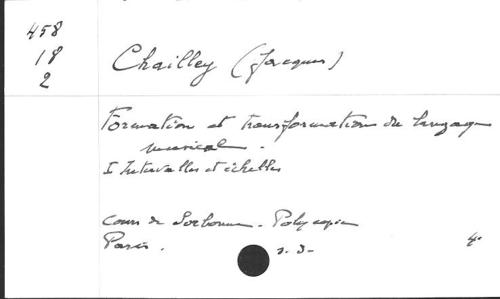 458
18
2
Chailley (Jacques)
Formation et transformation du langage
musical.
I Intervalles et échelles
Cours de Sorbonne. Polycopie
Paris. s. d. 4°